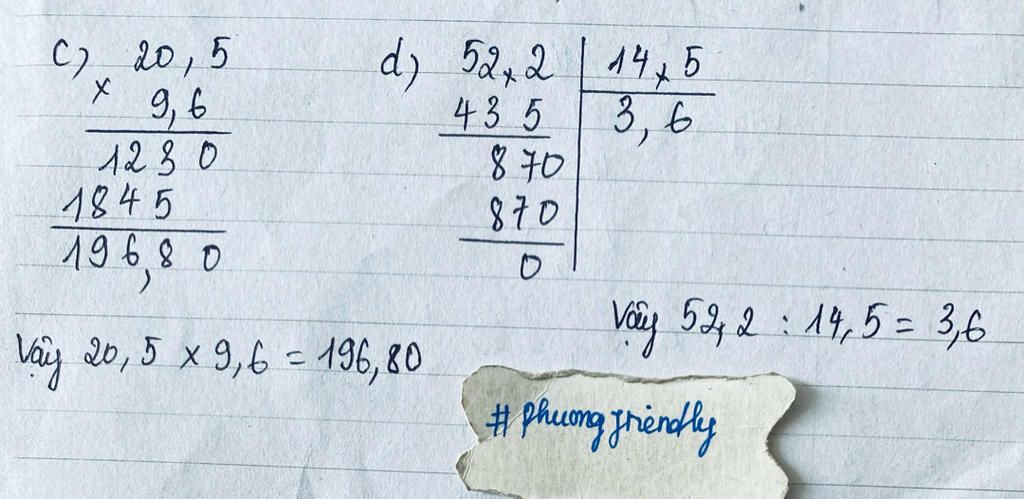 c) 20,5
× 9,6
1230
1845
196,80
Vậy 20,5 × 9,6 = 196,80
d) 52,2 | 14,5
435 | 3,6
870
870
0
Vậy 52,2 : 14,5 = 3,6
# phuongfriendly